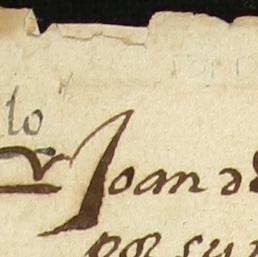 lo
Joan d
por su